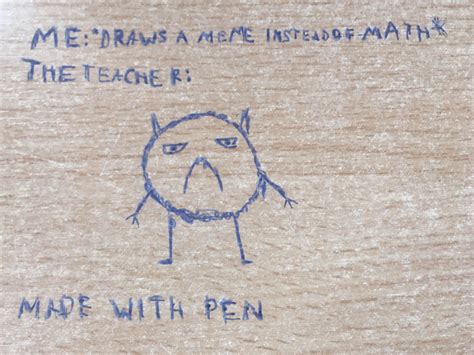 ME:*DRAWS A MEME INSTEAD OF MATH*
THE TEACHER:
MADE WITH PEN